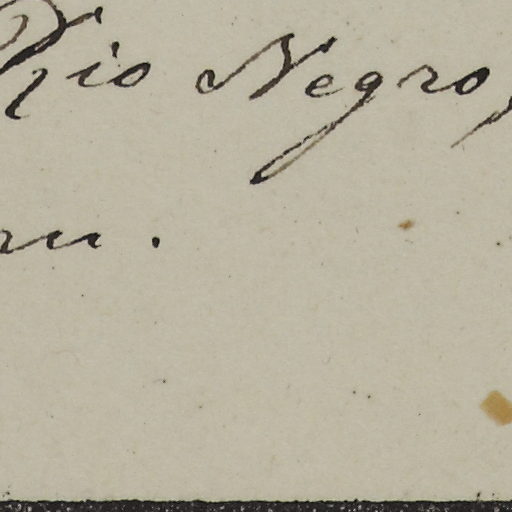 Rio Negro,
ru.